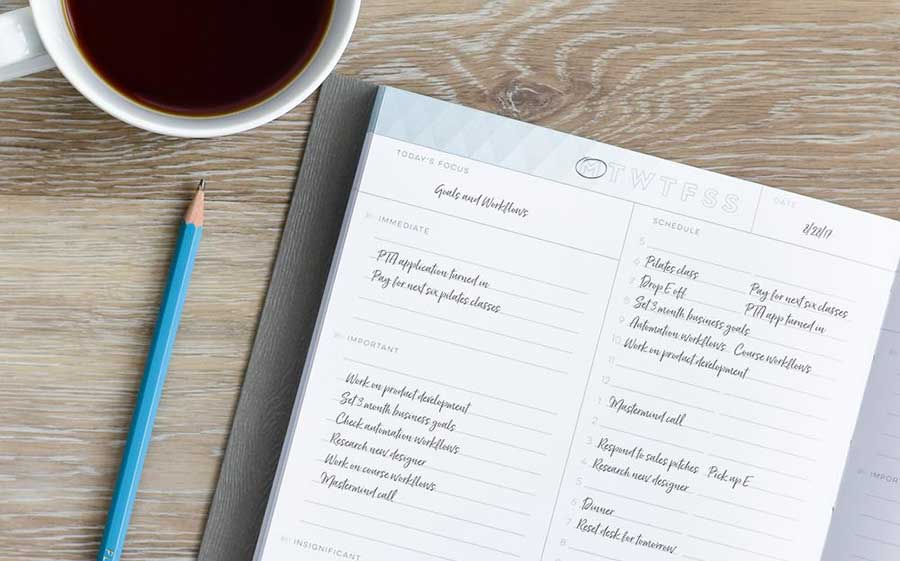 TODAY'S FOCUS
Goals and Workflows
M T W T F S S
DATE
IMMEDIATE
PTA application turned in
Pay for next six pilates classes
IMPORTANT
Work on product development
Set 3 month business goals
Check automation workflows
Research new designer
Work on course workflows
Mastermind call
INSIGNIFICANT
SCHEDULE
5
6 Pilates class Pay for next six classes
7 Drop E off PTA app turned in
8 Set 3 month business goals
9 Automation workflows Course workflows
10 Work on product development
11
12
1 Mastermind call
2
3 Respond to sales pitches Pick up E
4 Research new designer
5
6 Dinner
7 Reset desk for tomorrow
8